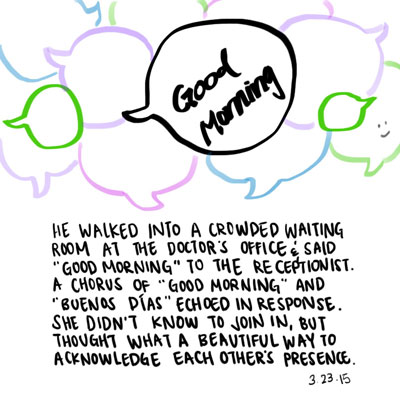 Good
Morning
HE WALKED INTO A CROWDED WAITING
ROOM AT THE DOCTOR'S OFFICE & SAID
"GOOD MORNING" TO THE RECEPTIONIST.
A CHORUS OF "GOOD MORNING" AND
"BUENOS DÍAS" ECHOED IN RESPONSE.
SHE DIDN'T KNOW TO JOIN IN, BUT
THOUGHT WHAT A BEAUTIFUL WAY TO
ACKNOWLEDGE EACH OTHER'S PRESENCE.
3.23.15